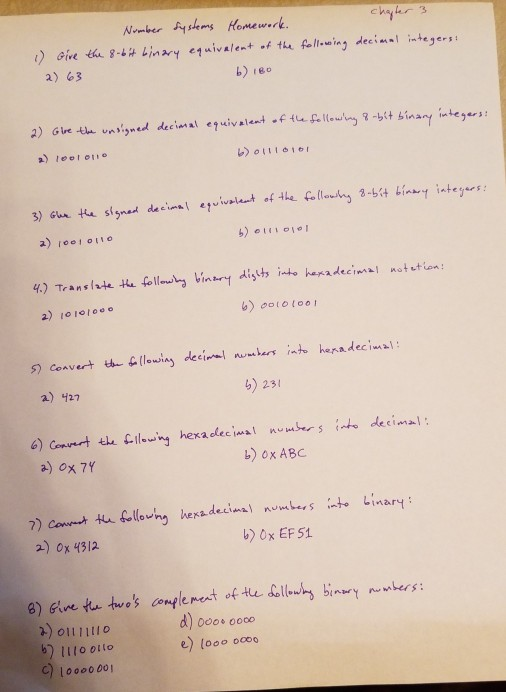 Chapter 3
Number Systems Homework.
1) Give the 8-bit binary equivalent of the following decimal integers:
a) 63 b) 180
2) Give the unsigned decimal equivalent of the following 8-bit binary integers:
a) 10010110 b) 01110101
3) Give the signed decimal equivalent of the following 8-bit binary integers:
a) 10010110 b) 01110101
4.) Translate the following binary digits into hexadecimal notation:
a) 10101000 b) 00101001
5) Convert the following decimal numbers into hexadecimal:
a) 427 b) 231
6) Convert the following hexadecimal numbers into decimal:
a) 0x74 b) 0xABC
7) Convert the following hexadecimal numbers into binary:
a) 0x4312 b) 0xEF51
8) Give the two's complement of the following binary numbers:
a) 01111110 d) 0000 0000
b) 1110 0110 e) 1000 0000
c) 10000001